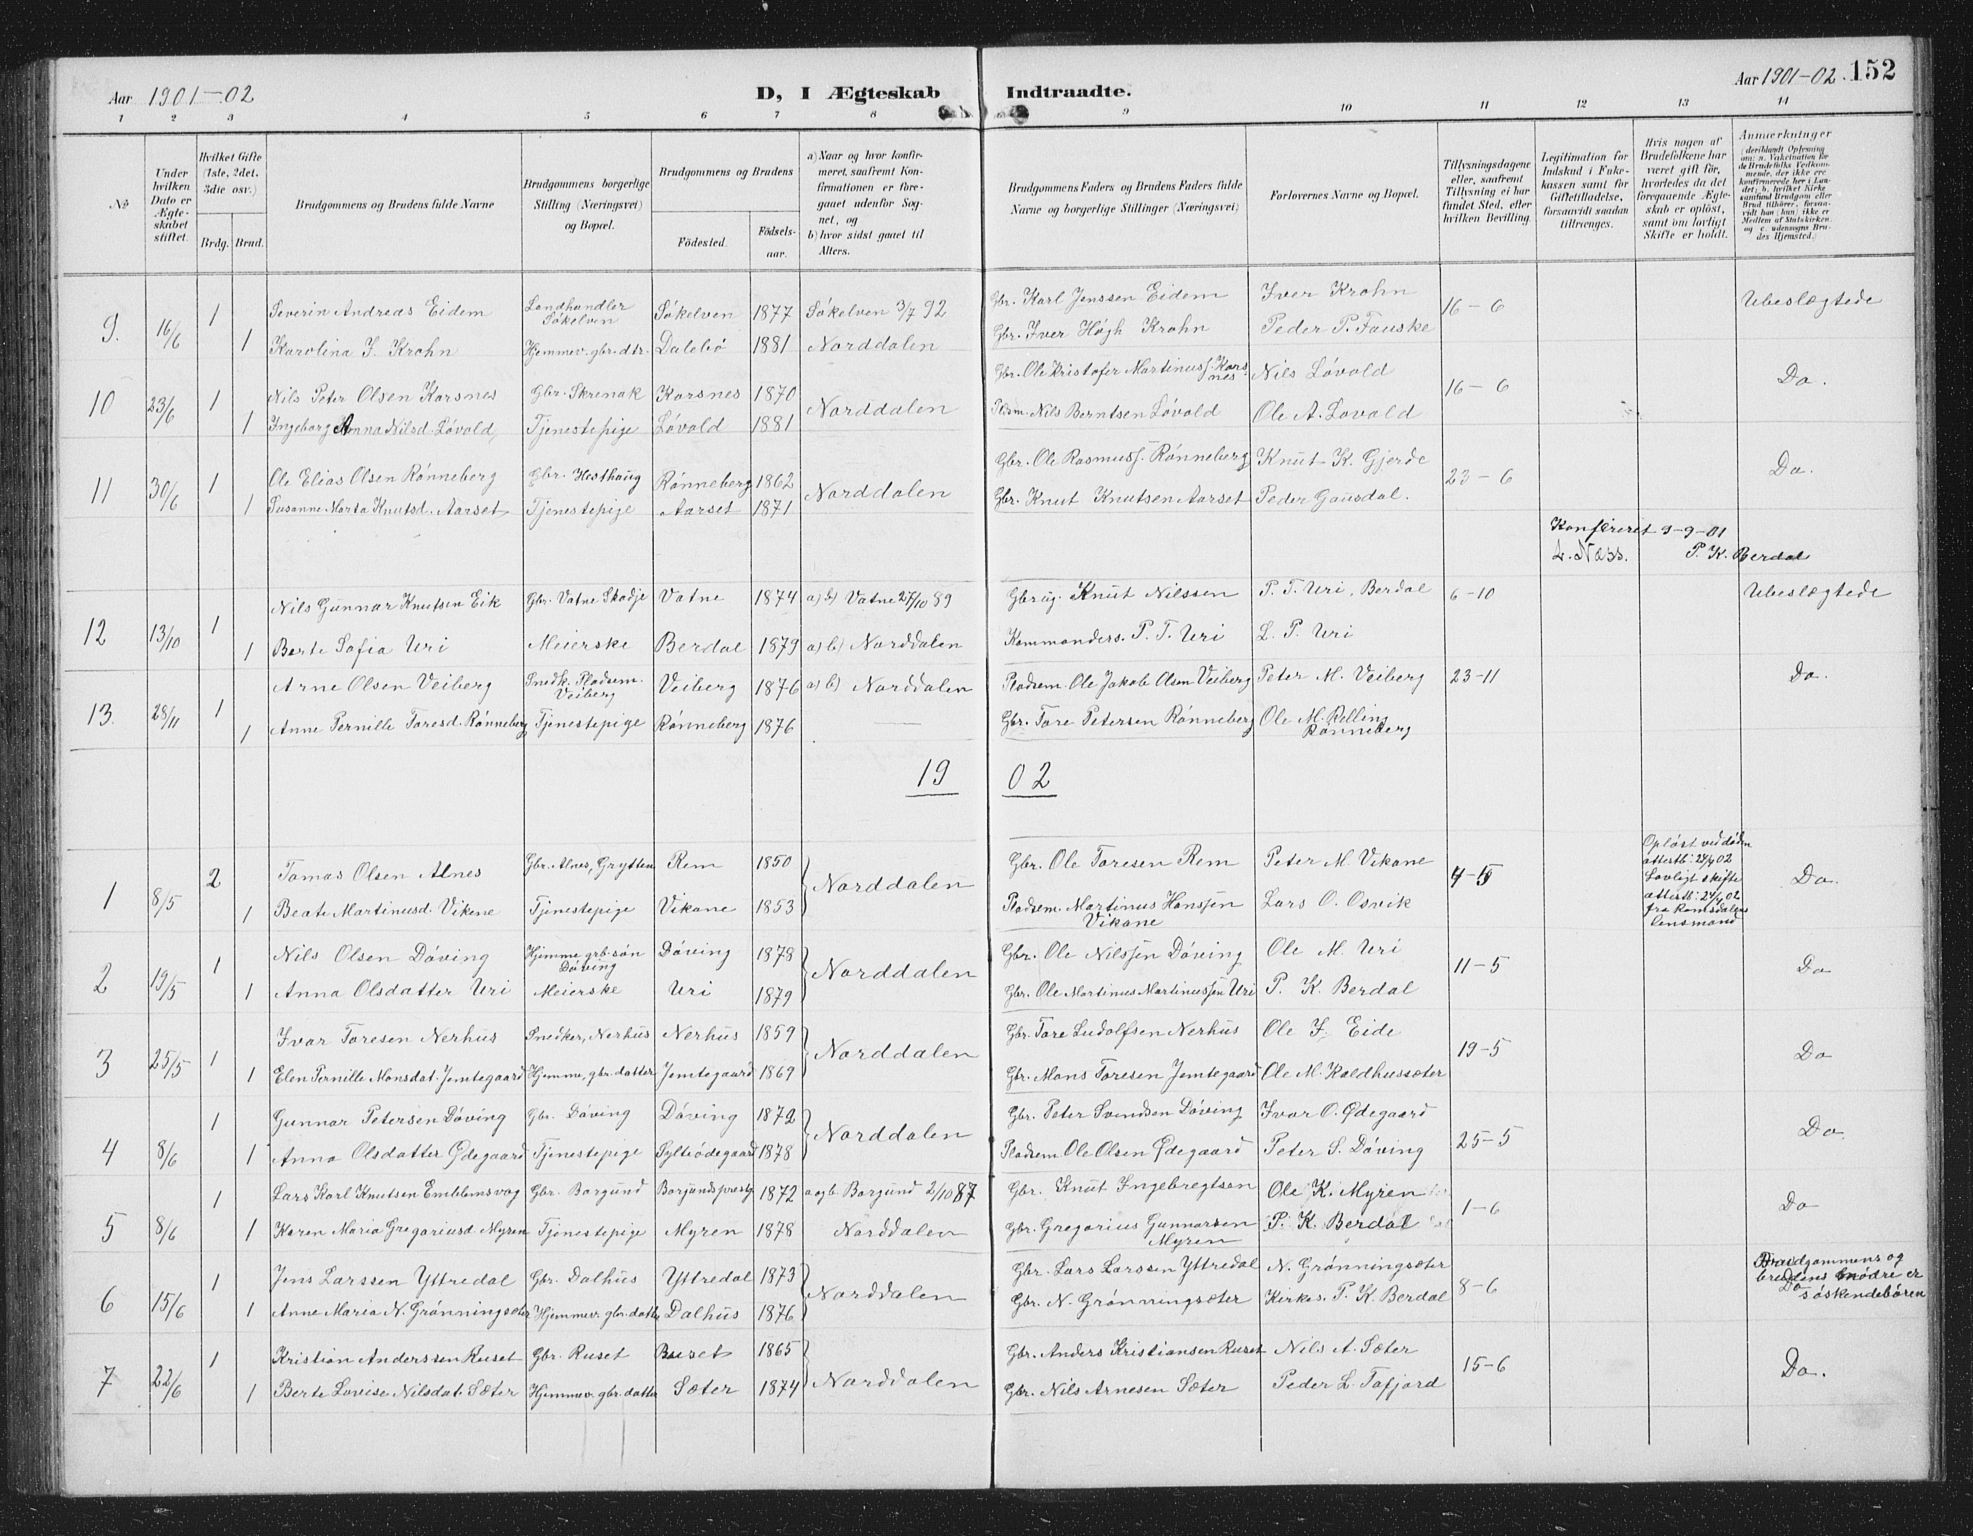 Aar 1901-02
D, I Ægteskab Indtraadte.
Aar 1901-02. 152
1 2 3 4 5 6 7 8 9 10 11 12 13 14
No
Under hvilken Dato er Ægteskabet stiftet.
Hvilket Gifte (1ste, 2det, 3die osv.)
Brdg. Brud.
Brudgommens og Brudens fulde Navne
Brudgommens borgerlige Stilling (Næringsvei) og Bopæl.
Brudgommens og Brudens
Fødested. Fødselsaar.
a) Naar og hvor konfirmeret, saafremt Konfirmationen er foregaaet udenfor Sognet, og
b) hvor sidst gaaet til Alters.
Brudgommens Faders og Brudens Faders fulde Navne og borgerlige Stillinger (Næringsvei)
Forlovernes Navne og Bopæl.
Tillysningsdagene eller, saafremt Tillysning ei har fundet Sted, efter hvilken Bevilling.
Legitimation for Indskud i Enkekassen samt for Giftetilladelse, forsaavidt saadan tiltrænges.
Hvis nogen af Brudefolkene har været gift før, hvorledes da det foregaaende Ægteskab er opløst, samt om lovligt Skifte er holdt.
Anmerkninger
9. 16/6 1 Severin Andreas Eidem Landhandler Søkelven Søkelven 1877 Søkelven 3/7 92 Gbr. Karl Jenssen Eidem Iver Krohn 16-6 Ubeslægtede
1 Karolina I. Krohn Hjemmev. gbr. dtr. Dalebø 1881 Norddalen Gbr. Iver Høgh Krohn Peder P. Fauske
10 23/6 1 Nils Peter Olsen Korsnes Gbr. Skrenak Korsnes 1870 Norddalen Gbr. Ole Kristofer Martinuss. Korsnes Nils Løvold 16-6 Do.
1 Ingeborg Anna Nilsd. Løvold Tjenestepige Løvold 1881 Pladsm. Nils Berntsen Løvold Ole A. Lovald
11 30/6 1 Ole Elias Olsen Rønneberg Gbr. Hesthaug Rønneberg 1862 Norddalen Gbr. Ole Rasmuss. Rønneberg Knut K. Gjerde 23-6 Do.
1 Susanne Marta Knutsd. Aarset Tjenestepige Aarset 1871 Gbr. Knut Knutsen Aarset Peder Gausdal.
Konfereret 9-9-01
L. Næss. P. K. Berdal
12 13/10 1 Nils Gunnar Knutsen Eik Gbr. Vatne Skodje Vatne 1874 a) b) Vatne 27/10 89 Gbrug. Knut Nilssen P. T. Uri, Berdal 6-10 Ubeslægtede
1 Berte Sofia Uri Meierske Berdal 1879 a) b) Norddalen Kommanders. P. T. Uri L. P. Uri
13. 28/11 1 Arne Olsen Veiberg Snedk. Pladsem. Veiberg Veiberg 1876 a) b) Norddalen Pladsem. Ole Jakob Olsen Veiberg Peter M. Veiberg 23-11 Do.
1 Anne Pernille Toresd. Rønneberg Tjenestepige Rønneberg 1876 — Gbr. Tore Petersen Rønneberg Ole M. Relling Rønneberg
19 02
1 8/5 2 Tomas Olsen Alnes Gbr. Alnes, Grytten Rem 1850 Norddalen Gbr. Ole Toresen Rem Peter M. Vikane 4-5 Opløst ved døden attestb: 24/4 02 Lovligt skifte attestb: 24/4 02 fra Romsdalens lensmand Do.
1 Beate Martinusd. Vikene Tjenestepige Vikane 1853 Pladsem. Martinus Hanssen Vikane Lars O. Osvik
2 19/5 1 Nils Olsen Døving Hjemme grb-søn Døving Døving 1878 Norddalen Gbr. Ole Nilssen Døving Ole M. Uri 11-5 Do
1 Anna Olsdatter Uri Meierske Uri 1879 Gbr. Ole Martinus Martinussen Uri P. K. Berdal
3 25/5 1 Ivar Toresen Nerhus Snedker, Nerhus Nerhus 1859 Norddalen Gbr. Tore Ludolfsen Nerhus Ole I. Eide 19-5 Do
1 Elen Pernille Monsdat. Jemtegaard Hjemme, gbr. datter Jemtegaard 1869 Gbr. Mons Toresen Jemtegaard Ole M. Kaldhussæter
4 8/6 1 Gunnar Petersen Døving Gbr. Døving Døving 1872 Norddalen Gbr. Peter Svendsen Døving Ivar O. Ødegaard 25-5 Do.
1 Anna Olsdatter Ødegaard Tjenestepige Sylteødegaard 1878 Pladsem Ole Olsen Ødegaard Peter S. Døving
5 8/6 1 Lars Karl Knutsen Emblemsvag Gbr. Borgund Borgunds prestg. 1872 a og b. Borgund 2/10 87 Gbr. Knut Ingebregtsen Ole K. Myren 1-6 Do
1 Karen Maria Gregoriusd Myren Tjenestepige Myren 1878 Norddalen Gbr. Gregorius Gunnarsen Myren P. K. Berdal
6 15/6 1 Jens Larssen Yttredal Gbr. Dalhus Yttredal 1873 Norddalen Gbr. Lars Larssen Yttredal N. Grønningsæter 8-6 Brudgommens og brudens mødre er søskendebøren Do
1 Anne Maria N. Grønningsæter Hjemmev. gbr. datter Dalhus 1876 Gbr. N. Grønningsæter Kirkes. P. K. Berdal
7 22/6 1 Kristian Anderssen Ruset Gbr. Ruset Ruset 1865 Norddalen Gbr. Anders Kristiansen Ruset Nils A. Sæter 15-6 Do.
1 Berte Lovise Nilsdat. Sæter Hjemmev. gbr. datter Sæter 1874 Gbr. Nils Arnesen Sæter Peder L. Tafjord